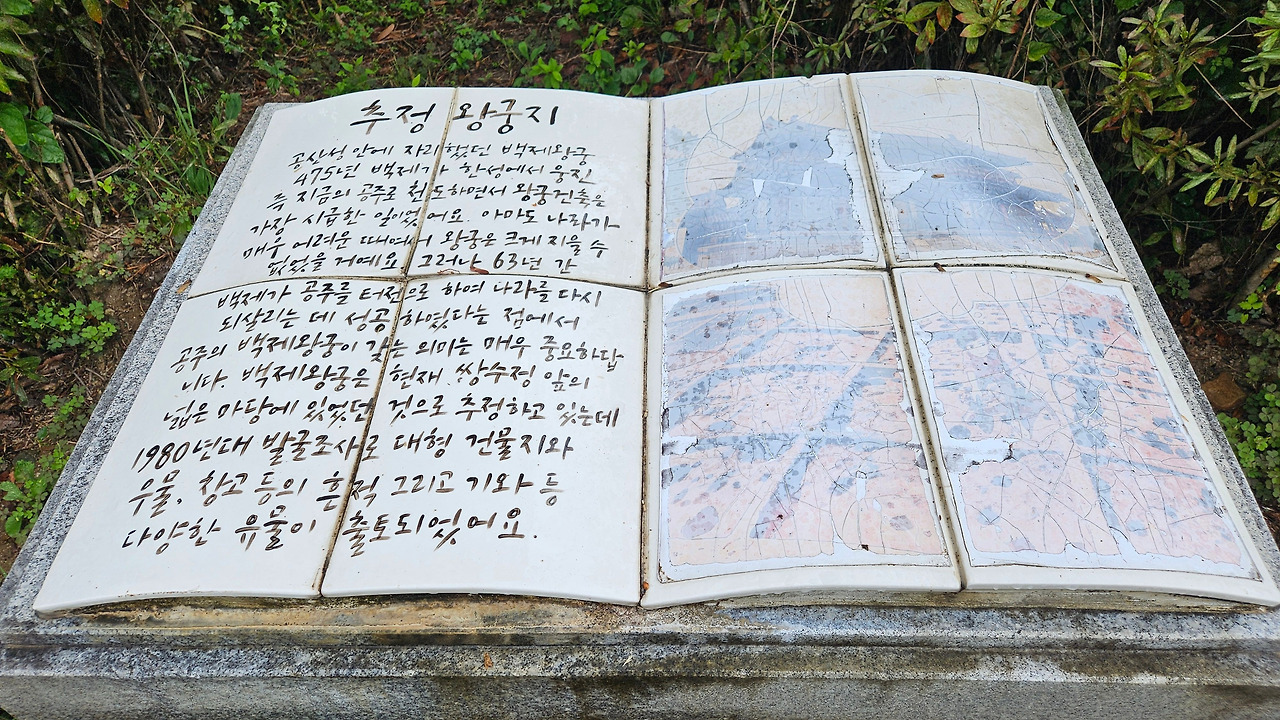 추정 왕궁지
공산성 안에 자리했던 백제왕궁
475년 백제가 한성에서 웅진
즉 지금의 공주로 천도하면서 왕궁건축은
가장 시급한 일이었어요. 아마도 나라가
매우 어려운 때여서 왕궁은 크게 지을 수
없었을 거예요. 그러나 63년 간
백제가 공주를 터전으로 하여 나라를 다시
되살리는 데 성공하였다는 점에서
공주의 백제왕궁이 갖는 의미는 매우 중요하답
니다. 백제왕궁은 현재 쌍수정 앞의
넓은 마당에 있었던 것으로 추정하고 있는데
1980년대 발굴조사로 대형 건물지와
우물, 창고 등의 흔적 그리고 기와 등
다양한 유물이 출토되었어요.